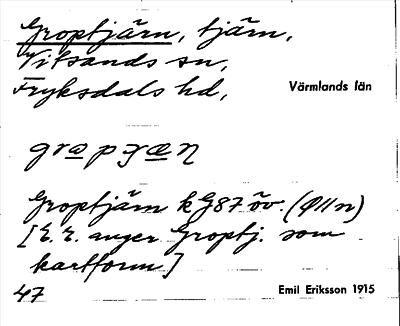 Groptjärn, tjärn,
Vitsands sn,
Fryksdals hd, Värmlands län
Groptjärn k G87 öv. (Ø11n)
[E. E. anger Groptj. som
kartform]
47 Emil Eriksson 1915